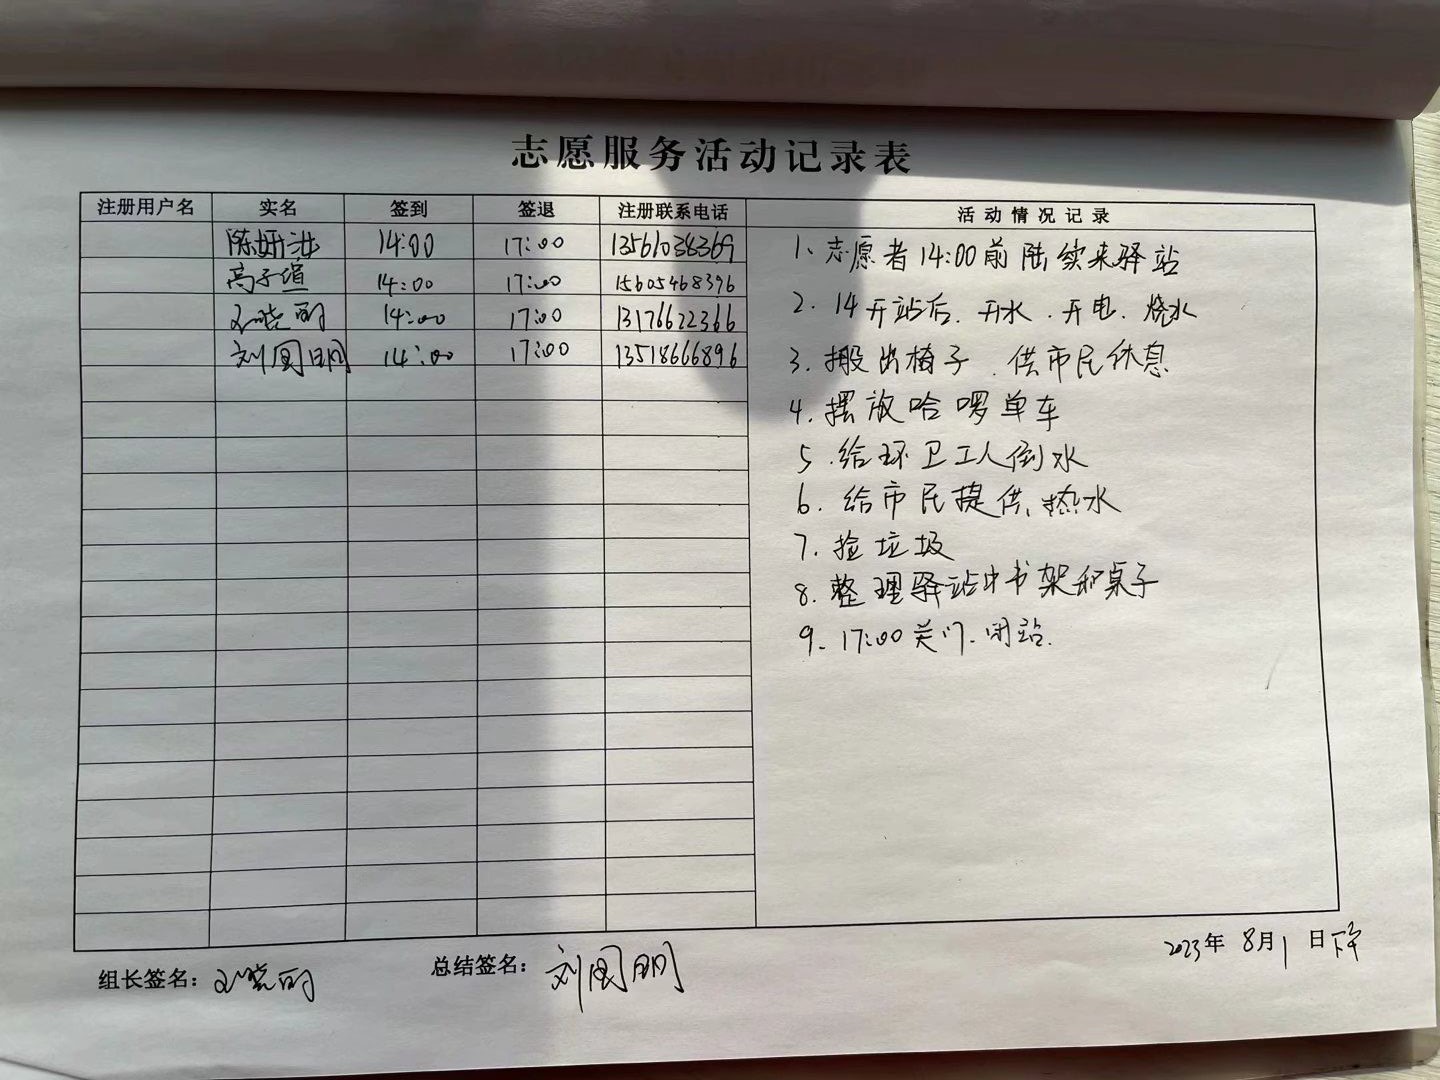 志愿服务活动记录表
注册用户名 实名 签到 签退 注册联系电话 活动情况记录
陈妍汝 14:00 17:00 13561038369
高子瑄 14:00 17:00 15605468396
晓明 14:00 17:00 13176622366
刘国明 14:00 17:00 13518666896
1、志愿者14:00前陆续来驿站
2. 14开站后.开水.开电.烧水
3.搬出椅子.供市民休息
4.摆放哈啰单车
5.给环卫工人倒水
6.给市民提供热水
7.捡垃圾
8.整理驿站中书架和桌子
9. 17:00关门.闭站.
组长签名：晓明
总结签名：刘国明
2023年8月1日下午